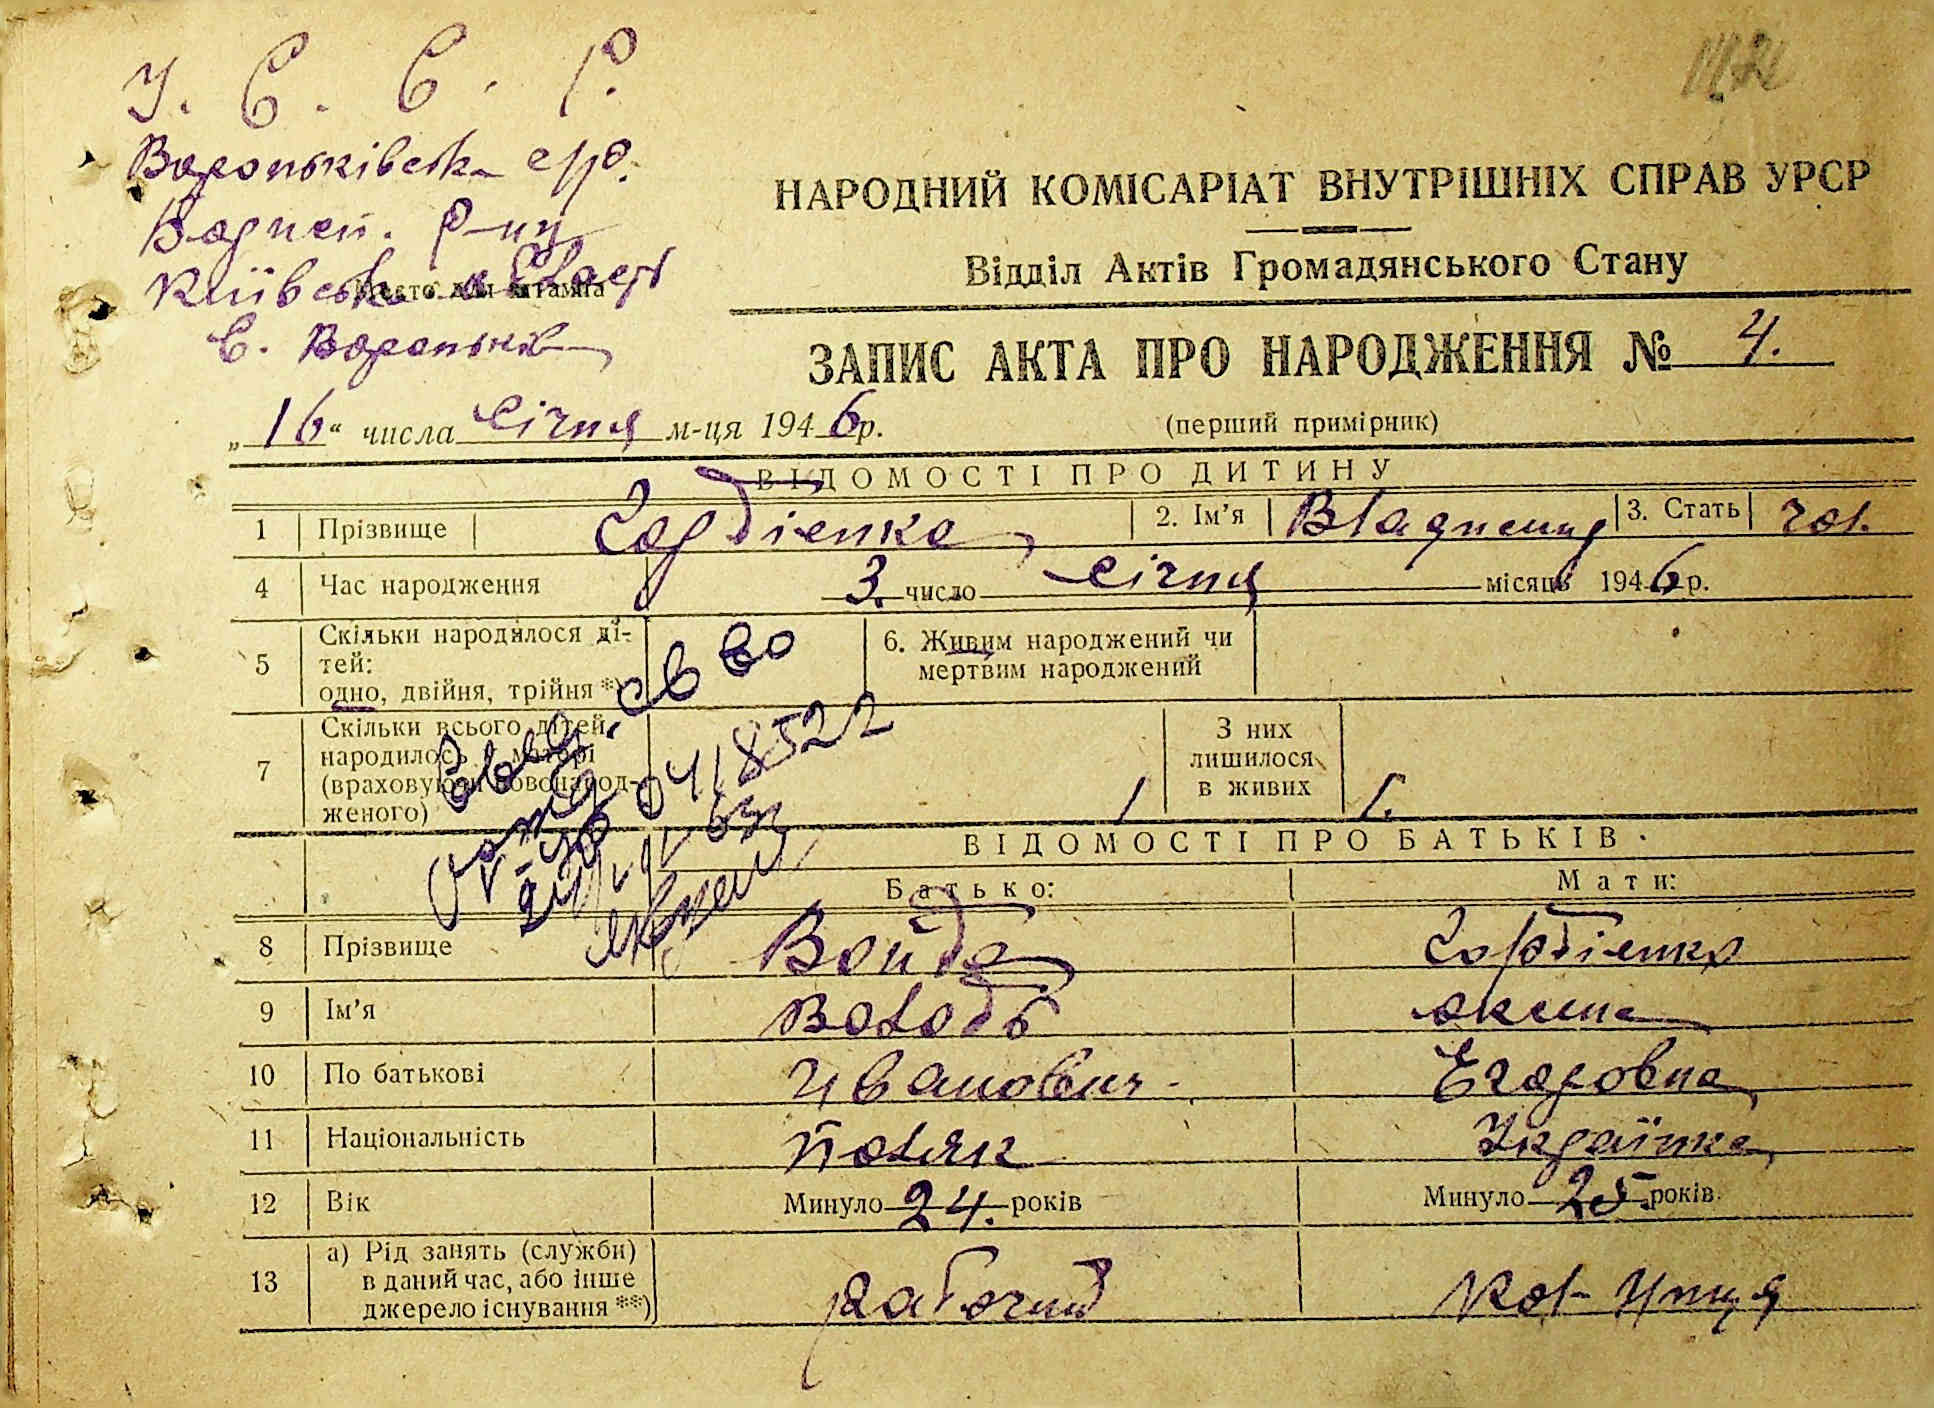 У. С. С. Р.
Вороньківськ
Борисп. р-ну
Київськ област
Место для штампа
С. Вороньків
НАРОДНИЙ КОМІСАРІАТ ВНУТРІШНІХ СПРАВ УРСР
Відділ Актів Громадянського Стану
ЗАПИС АКТА ПРО НАРОДЖЕННЯ № 4.
„16“ числа січня м-ця 1946 р. (перший примірник)
ВІДОМОСТІ ПРО ДИТИНУ
1 Прізвище Гордіенко 2. Ім’я Владиемир 3. Стать чол.
4 Час народження 3. число січня місяць 1946 р.
5 Скільки народилося ді-
тей:
одно, двійня, трійня *)
6. Живим народжений чи
мертвим народжений
7 Скільки всього дітей
народилось у матері
(враховуючи новонарод-
женого) 1
З них
лишилося
в живих 1.
0418522
ВІДОМОСТІ ПРО БАТЬКІВ
Батько: Мати:
8 Прізвище Войда Гордіенко
9 Ім’я Володь Оксена
10 По батькові Иванович Егоровна
11 Національність Поляк Українка
12 Вік Минуло 24. років Минуло 25. років
13 а) Рід занять (служби)
в даний час, або інше
джерело існування **) рабочий Кол-Ниця